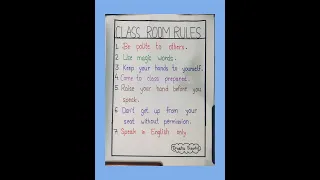 CLASS ROOM RULES
1. Be polite to others.
2. Use magic words.
3. Keep your hands to yourself.
4. Come to class prepared.
5. Raise your hand before you
speak.
6. Don't get up from your
seat without permission.
7. Speak in English only.